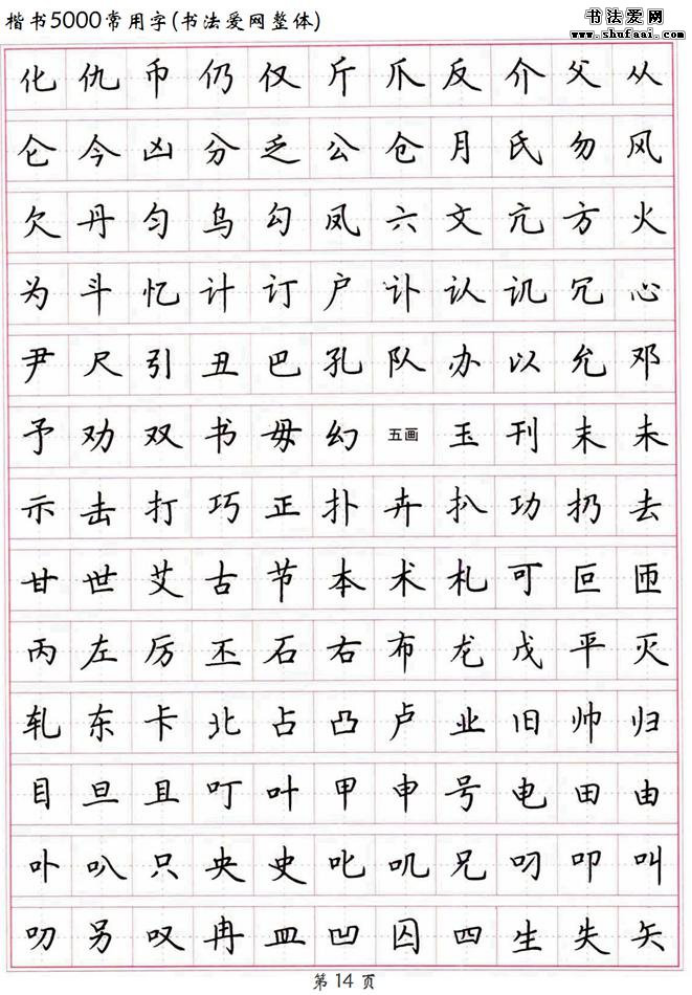 楷书5000常用字(书法爱网整体)
书法爱网
www.shufaai.com
化仇币仍仅斤爪反介父从
仑今凶分乏公仓月氏勿风
欠丹匀乌勾凤六文亢方火
为斗忆计订户讣认讥冗心
尹尺引丑巴孔队办以允邓
予劝双书毋幻五画玉刊末未
示击打巧正扑卉扒功扔去
甘世艾古节本术札可叵匝
丙左厉丕石右布龙戊平灭
轧东卡北占凸卢业旧帅归
目旦且叮叶甲申号电田由
卟叭只央史叱叽兄叼叩叫
叨另叹冉皿凹囚四生失矢
第14页